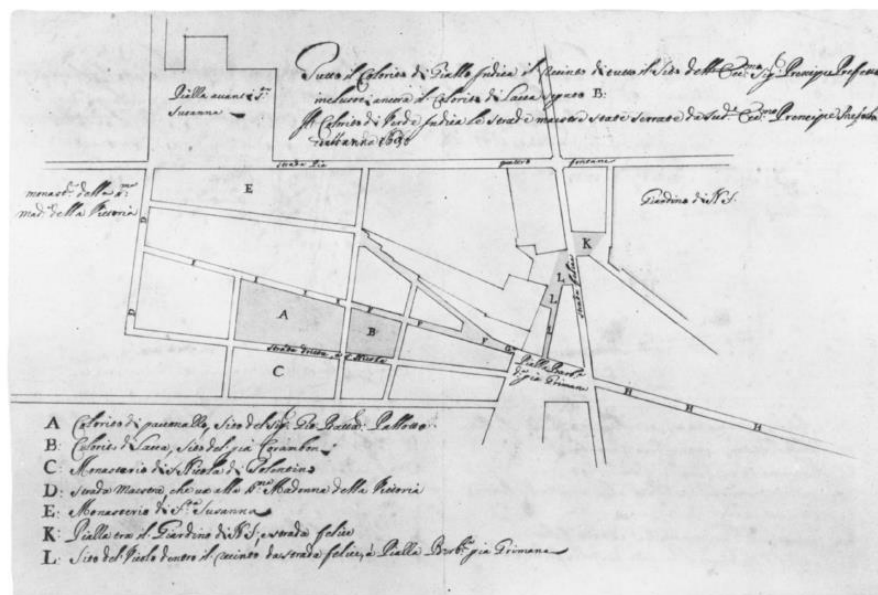 Tutto il Colorito di Giallo Indica il Recinto di tutto il Sito dell' Ecc.mo Sig.r Prencipe Prefetto
inclusovi ancora il Colorito di Lacca segnato B:
Il Colorito di Verde Indica le strade maestre state serrate da sud.o Ecc.mo Prencipe Prefetto
dell'anno 16
Piazza avanti S.ta
Susanna
strada Pia
quattro fontane
monast.o della
mad.a della Vittoria
Giardino di N. S.
E
D
D
K
L
L
L
strada felice
A
B
F
F
F
G
strada dritta a S. Nicola
Piazza Barb.a
già Grimana
C
H
H
H
A Colorito di pavonazzo, Sito del sig.r Gio Batta Pallotto
B: Colorito di Lacca, sito del già
C: Monasterio di S Nicola di Tolentino
D: strada Maestra, che va alla Madonna della Vittoria
E: Monasterio di S.ta Susanna
K: Piazza tra il Giardino di N. S., e strada felice
L: Sito del Vicolo dentro il Recinto da strada felice, a Piazza Barb.a già Grimana